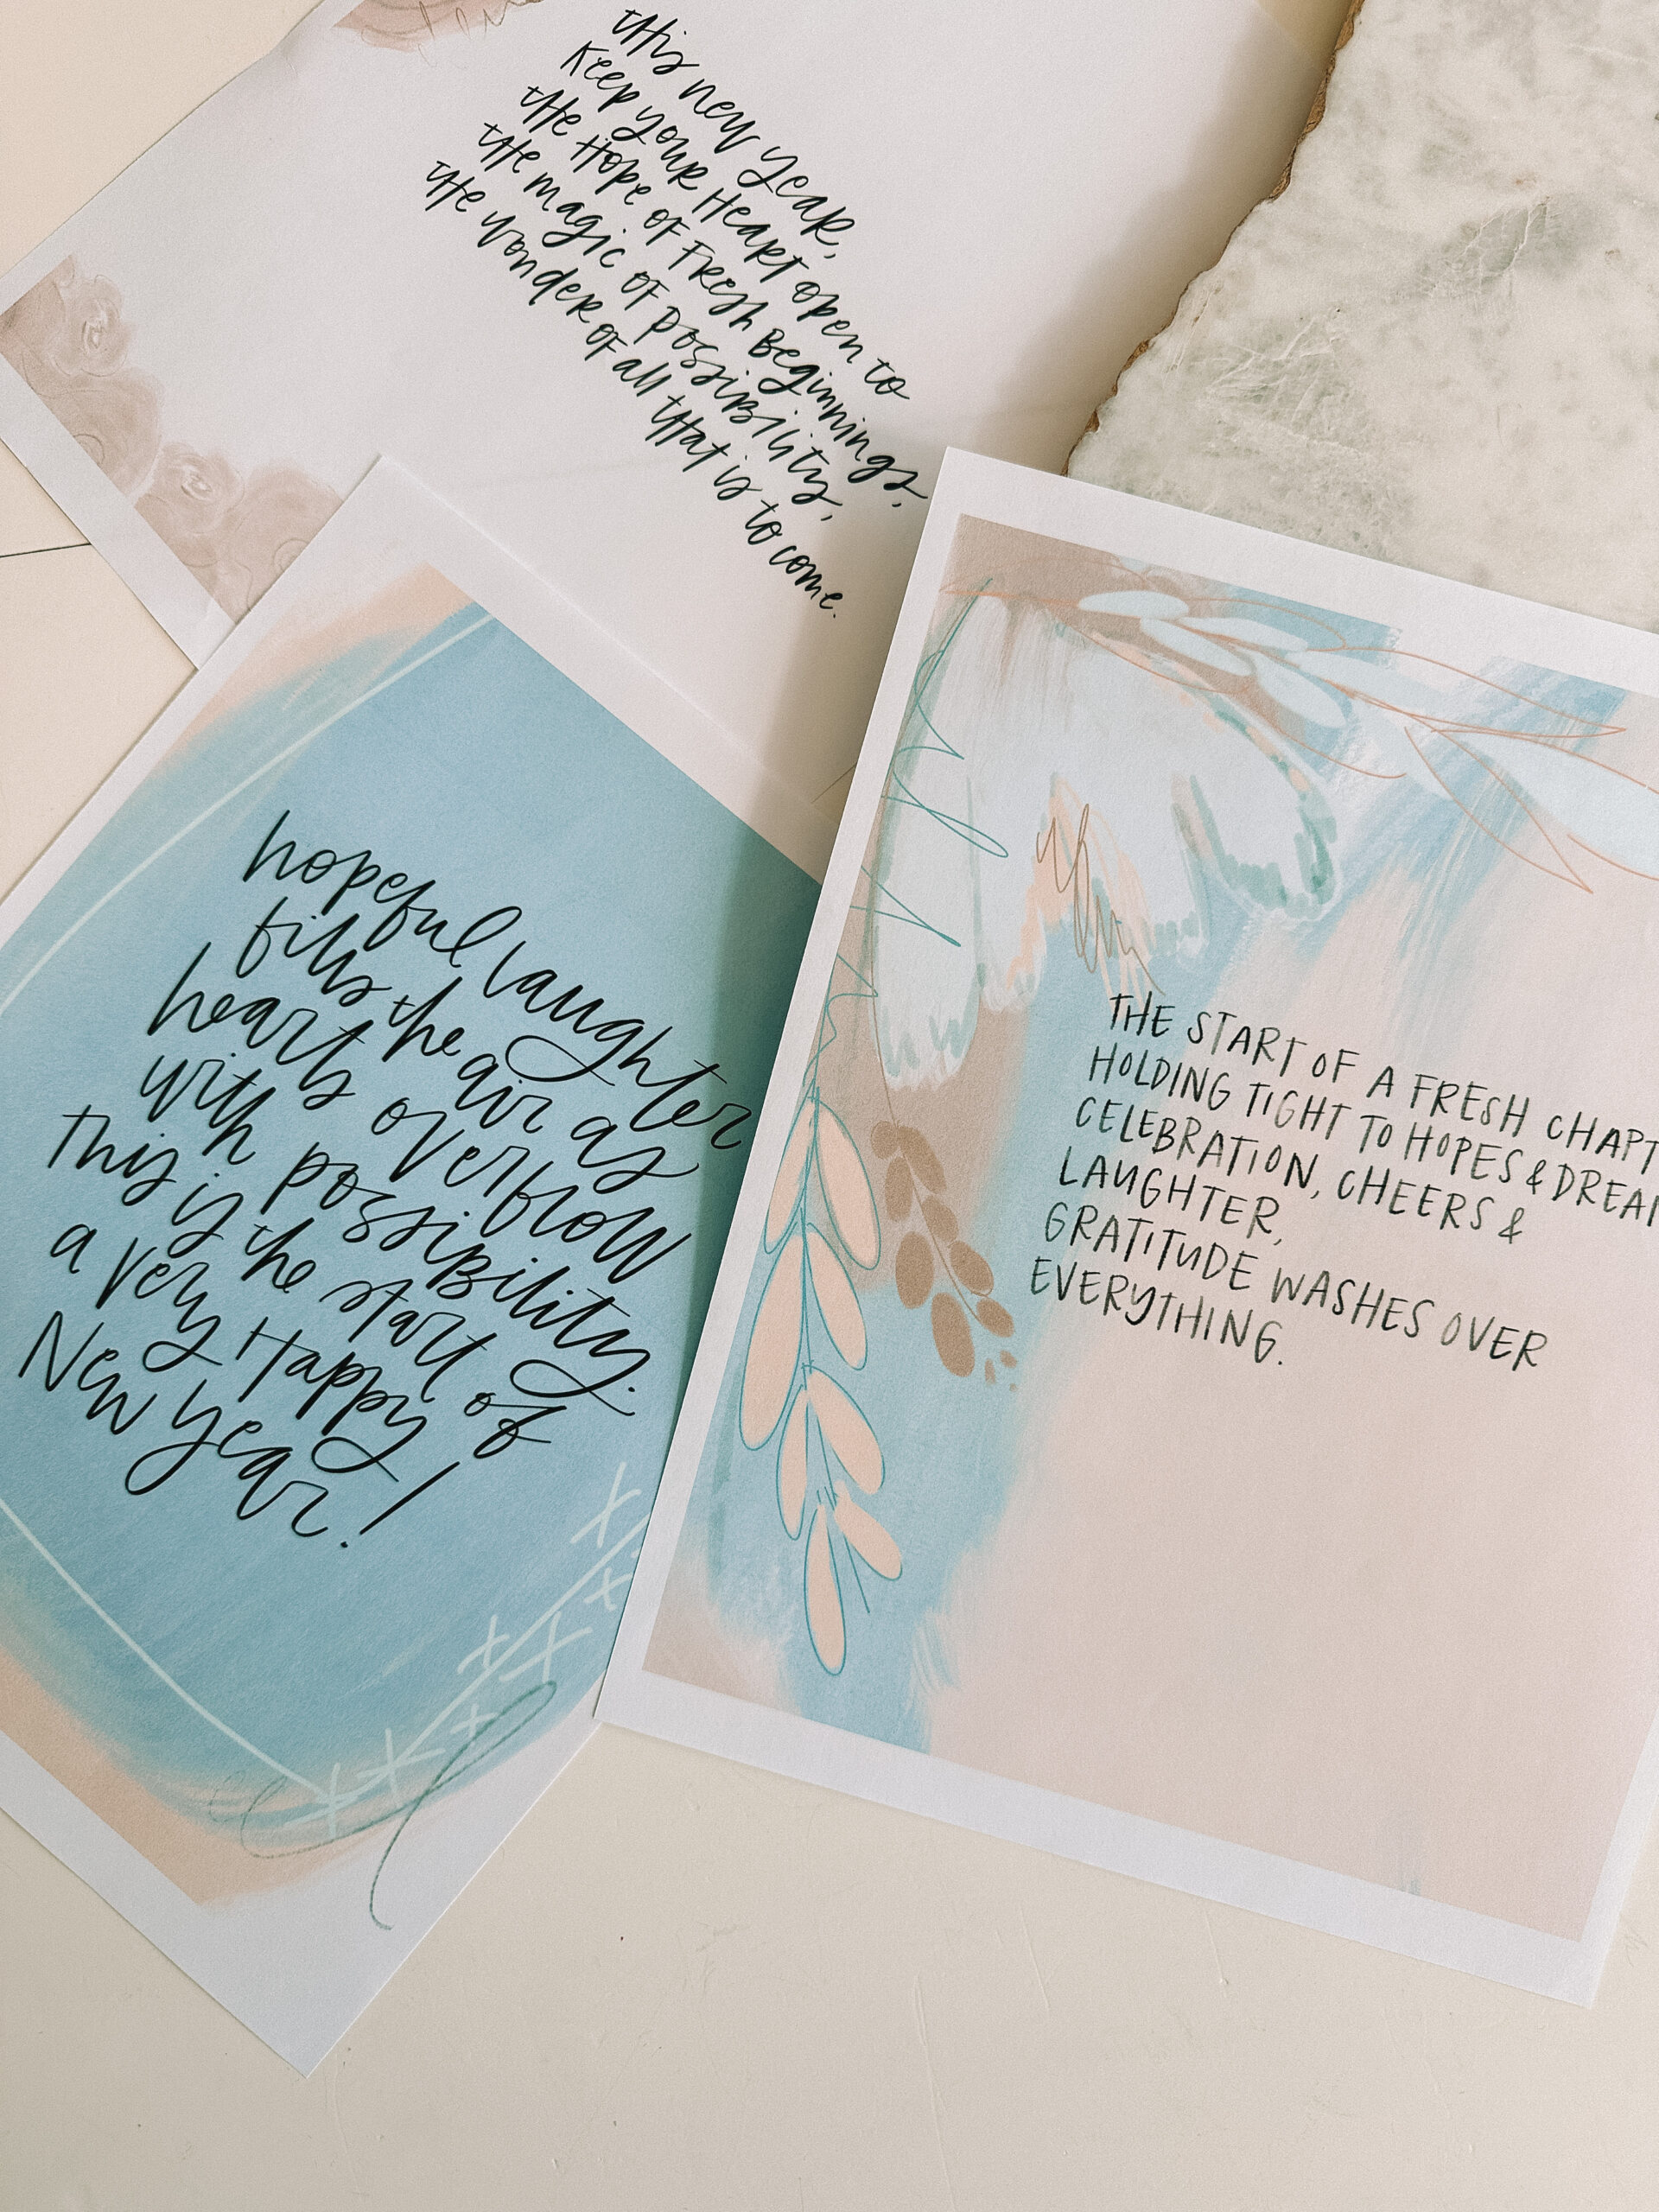 this new year,
Keep your Heart open to
the Hope of Fresh Beginnings,
the magic of possibility,
the wonder of all that is to come.
hopeful laughter
fills the air as
hearts overflow
with possibility.
This is the start of
a very Happy
New year!
THE START OF A FRESH CHAPT
HOLDING TIGHT TO HOPES & DREAM
CELEBRATION, CHEERS &
LAUGHTER,
GRATITUDE WASHES OVER
EVERYTHING.